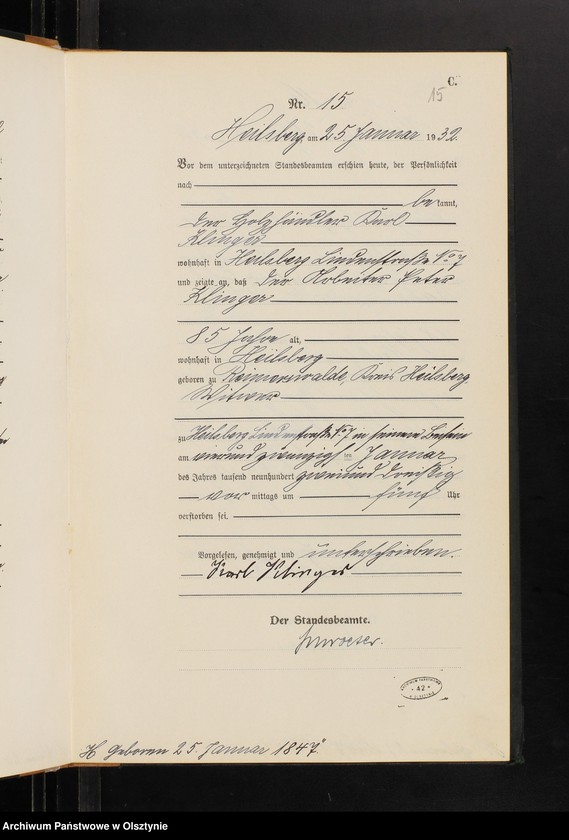 C.
15
Nr. 15
Heilsberg, am 25 Januar 1932.
Vor dem unterzeichneten Standesbeamten erschien heute, der Persönlichkeit
nach
bekannt,
der Holzhändler Karl
Klinger
wohnhaft in Heilsberg Lindenstraße No 7
und zeigte an, daß der Arbeiter Peter
Klinger
85 Jahre alt,
wohnhaft in Heilsberg
geboren zu Reimerswalde, Kreis Heilsberg
Witwer
zu Heilsberg Lindenstraße No 7 in seinem Beisein
am vierundzwanzigsten Januar
des Jahres tausend neunhundert zweiunddreißig
vor mittags um fünf Uhr
verstorben sei.
Vorgelesen, genehmigt und unterschrieben.
Karl Klinger
Der Standesbeamte.
H geboren 25. Januar 1847"
42
Archiwum Państwowe w Olsztynie